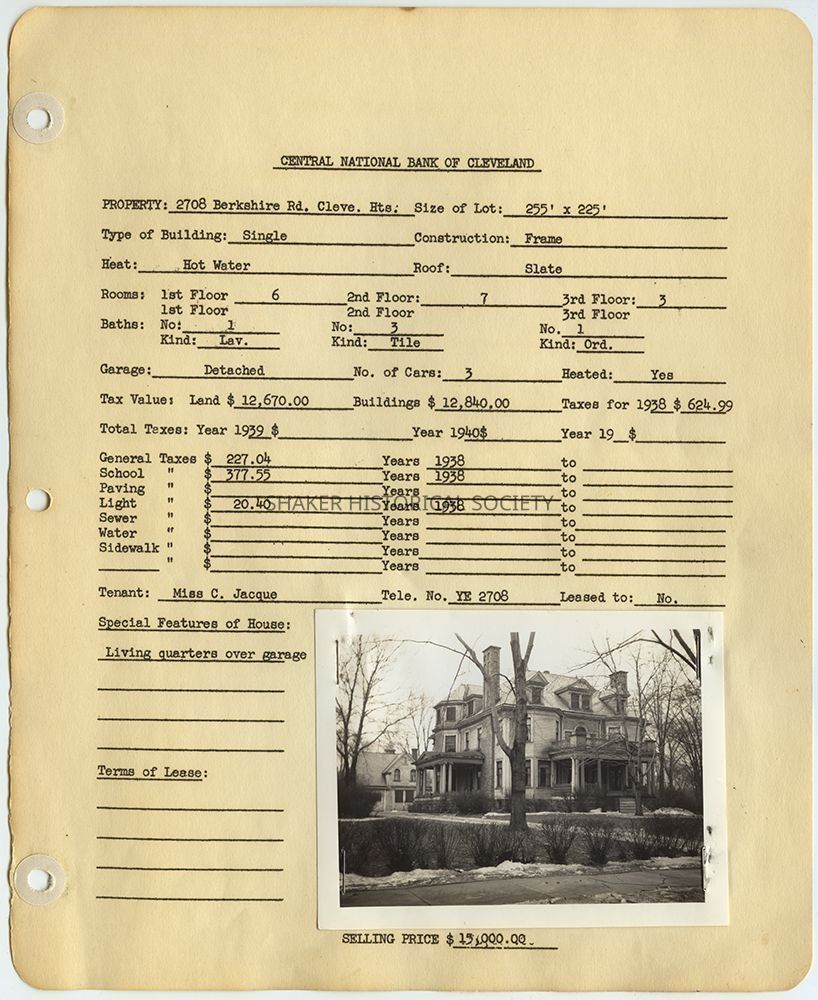 CENTRAL NATIONAL BANK OF CLEVELAND
PROPERTY: 2708 Berkshire Rd. Cleve. Hts. Size of Lot: 255' x 225'
Type of Building: Single Construction: Frame
Heat: Hot Water Roof: Slate
Rooms: 1st Floor 6 2nd Floor: 7 3rd Floor: 3
1st Floor 2nd Floor 3rd Floor
Baths: No: 1 No: 3 No. 1
Kind: Lav. Kind: Tile Kind: Ord.
Garage: Detached No. of Cars: 3 Heated: Yes
Tax Value: Land $ 12,670.00 Buildings $ 12,840.00 Taxes for 1938 $ 624.99
Total Taxes: Year 1939 $ Year 1940$ Year 19 $
General Taxes $ 227.04 Years 1938 to
School " $ 377.55 Years 1938 to
Paving " $ Years to
Light " $ 20.40 Years 1938 to
SHAKER HISTORICAL SOCIETY
Sewer " $ Years to
Water " $ Years to
Sidewalk " $ Years to
" $ Years to
Tenant: Miss C. Jacque Tele. No. YE 2708 Leased to: No.
Special Features of House:
Living quarters over garage
Terms of Lease:
SELLING PRICE $ 15,000.00